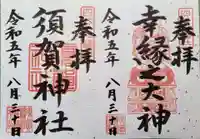 奉拝
幸縁之大神
令和五年 八月三十日
奉拝
須賀神社
令和五年 八月三十日